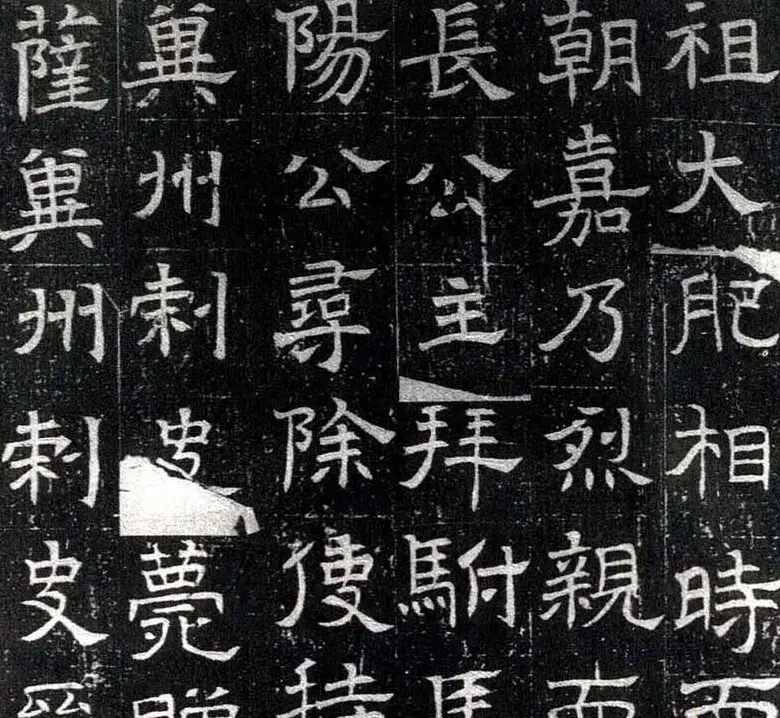 祖大肥相時
朝嘉乃烈親
長公主拜駙馬
陽公尋除使持
冀州刺史薨贈
薩冀州刺史晉